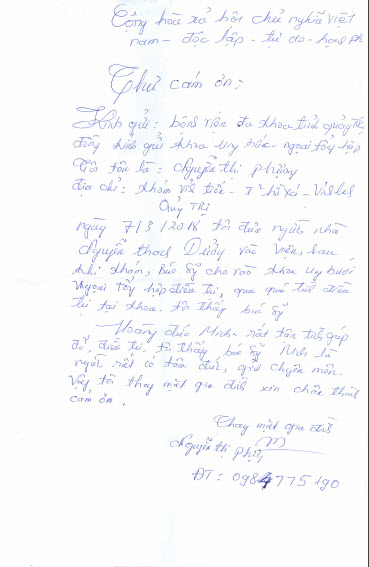 Cộng hòa xã hội chủ nghĩa việt
nam - độc lập - tự do - hạnh ph
Thư cám ơn:
Kính gửi: bệnh viện đa khoa tỉnh quảng Trị
đồng kính gửi khoa ung bướu - ngoại tổng hợp
Tôi tên là: Nguyễn thị phương
địa chỉ: Khóm vĩnh tiến -
Quảng Trị
ngày 7/3/2018 tôi đưa người nhà
Nguyễn thanh vào viện, sau
khi khám, Bác sỹ cho vào khoa ung bướu
ngoại tổng hợp điều trị, qua quá trình điều
trị tại khoa. tôi thấy bác sỹ
Hoàng đức Minh rất tận tình giúp
đỡ, điều trị. tôi thấy bác sỹ Minh là
người rất có tâm đức, giỏi chuyên môn.
Vậy tôi thay mặt gia đình xin chân thành
cám ơn.
Thay mặt gia đình
Nguyễn thị phương
ĐT: 0984775190